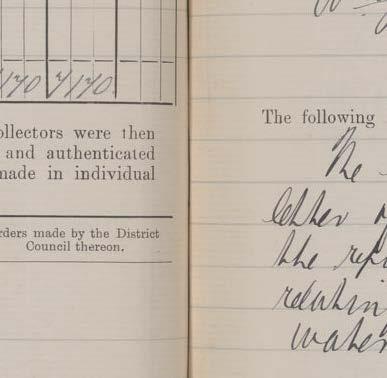 170 7170
ollectors were then
and authenticated
made in individual
rders made by the District
Council thereon.
The following
The
letter
the
relatin
water